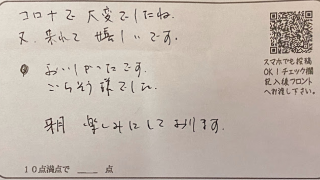 コロナで大変でしたね。
又、来れて嬉しいです。
おいしかったです。
ごちそう様でした。
来月楽しみにしております。
10点満点で 点
スマホでも投稿
OK!チェック欄
記入後フロント
へお渡し下さい。